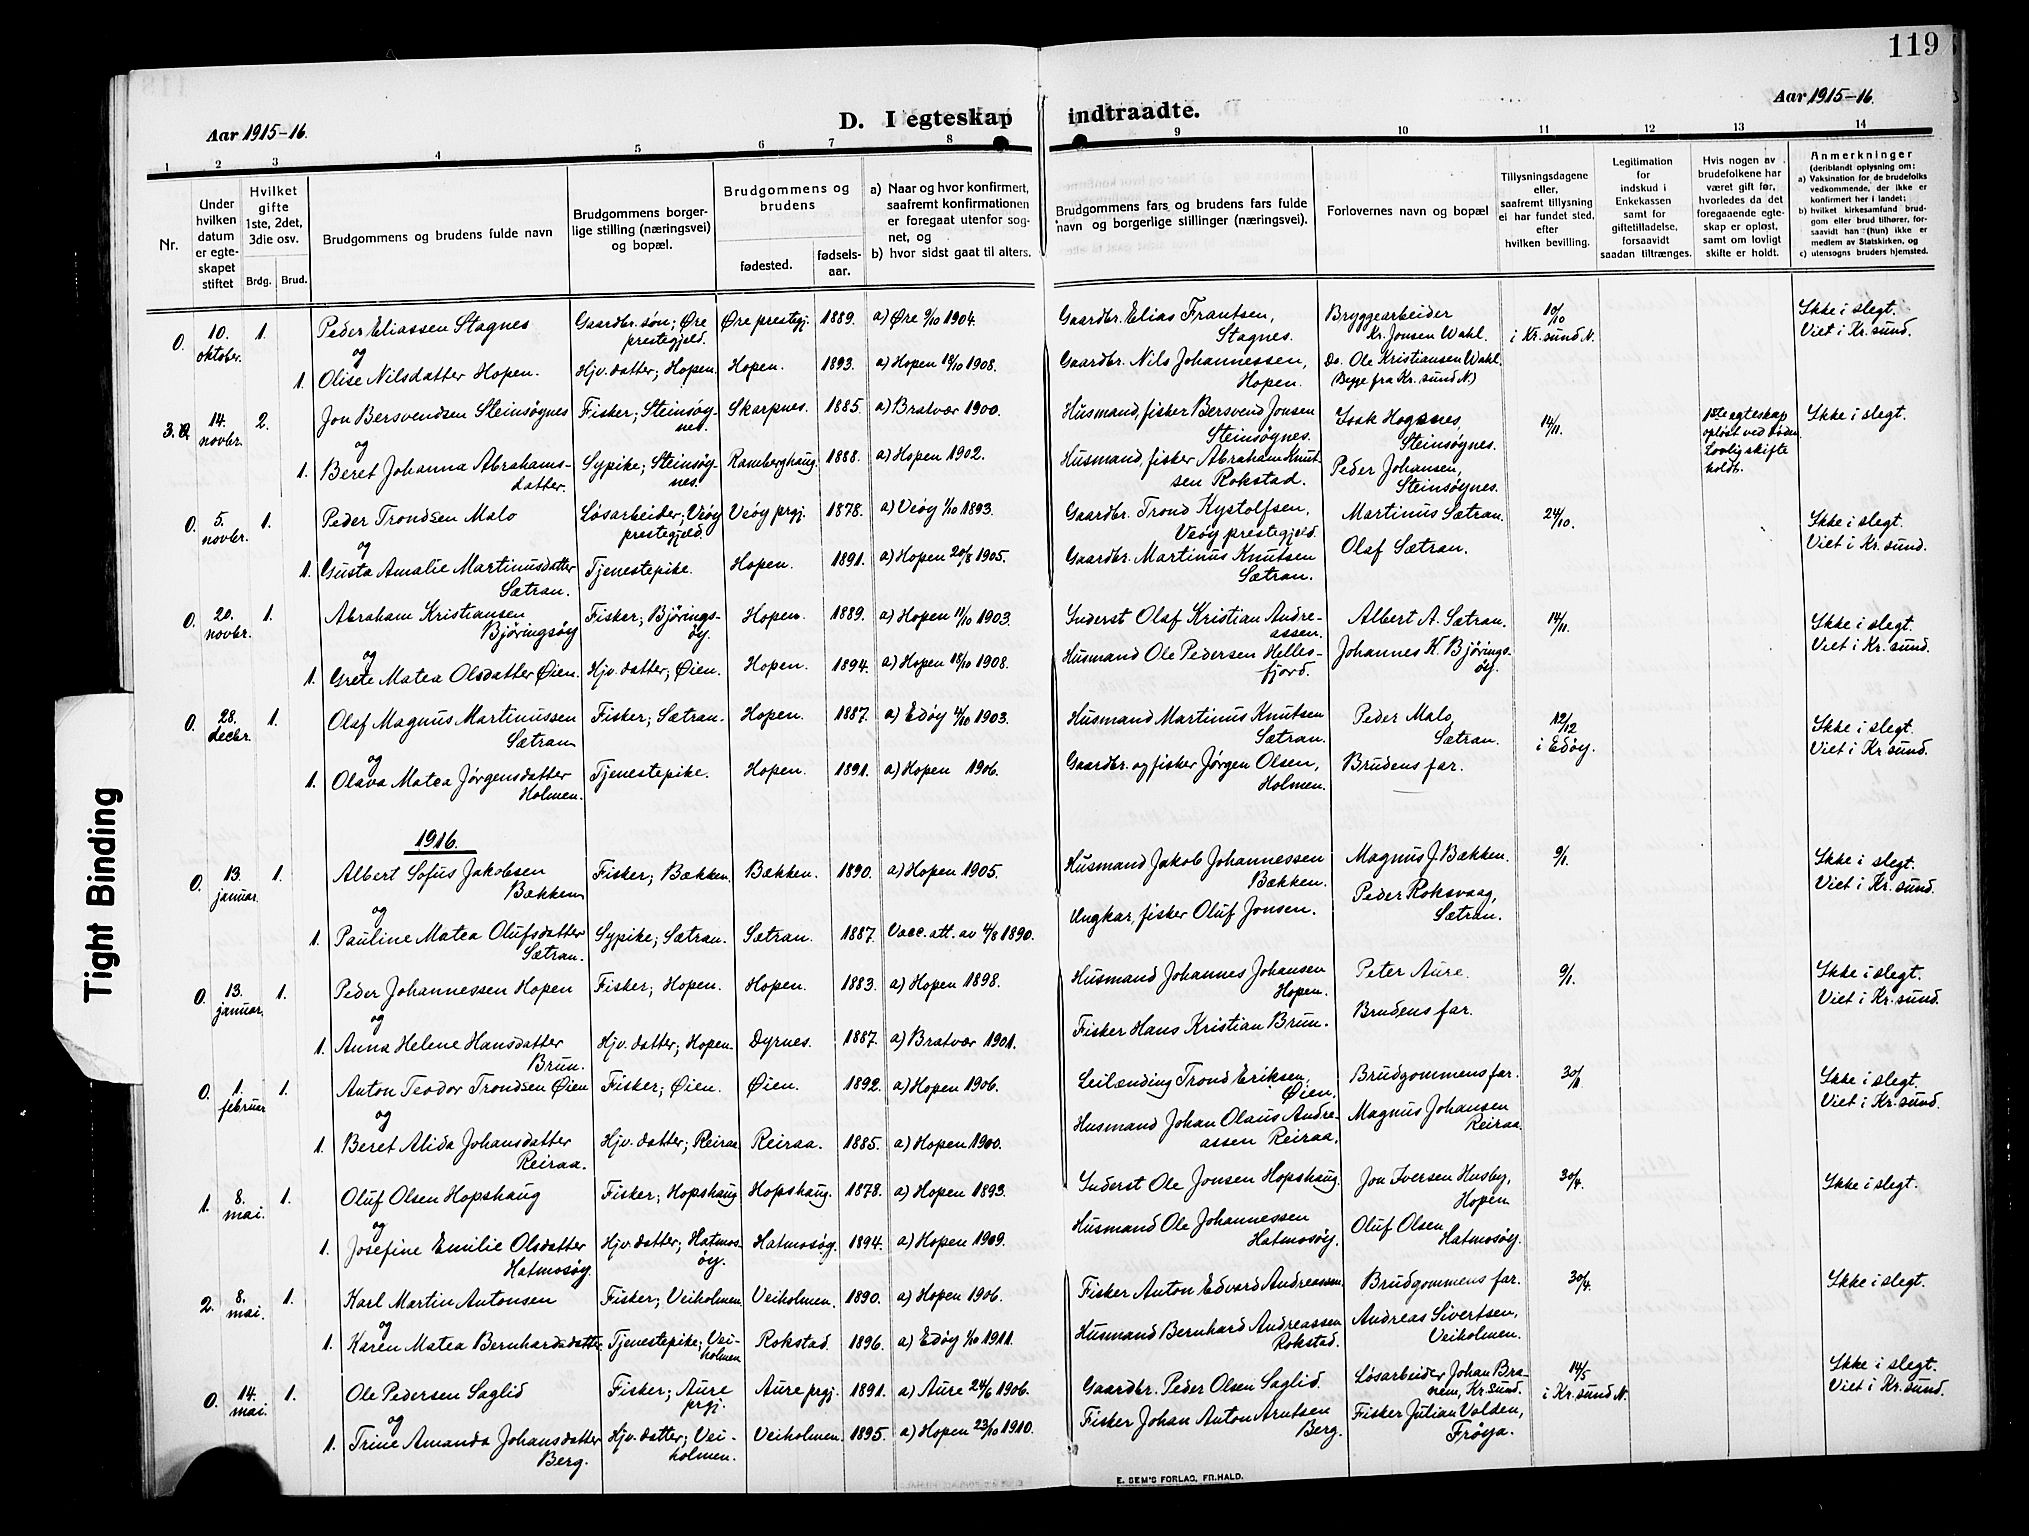 119
Aar 1915-16.
D. I egteskap indtraadte.
Aar 1915-16.
1 2 3 4 5 6 7 8 9 10 11 12 13 14
Nr.
Under hvilken datum er egteskapet stiftet
Hvilket gifte 1ste, 2det, 3die osv.
Brdg. Brud.
Brudgommens og brudens fulde navn
Brudgommens borgerlige stilling (næringsvei) og bopæl.
Brudgommens og brudens
fødested. fødselsaar.
a) Naar og hvor konfirmert, saafremt konfirmationen er foregaat utenfor sognet, og
b) hvor sidst gaat til alters.
Brudgommens fars og brudens fars fulde navn og borgerlige stillinger (næringsvei).
Forlovernes navn og bopæl
Tillysningsdagene eller, saafremt tillysning ei har fundet sted, efter hvilken bevilling.
Legitimation for indskud i Enkekassen samt for giftetilladelse, forsaavidt saadan tiltrænges.
Hvis nogen av brudefolkene har været gift før, hvorledes da det foregaaende egteskap er opløst, samt om lovligt skifte er holdt.
Anmerkninger
(deriblandt oplysning om:
a) Vaksination for de brudefolks vedkommende, der ikke er konfirmert her i landet;
b) hvilket kirkesamfund brudgom eller brud tilhører, forsaavidt han (hun) ikke er medlem av Statskirken, og
c) utensogns bruders hjemsted.
0. 10. oktober. 1. Peder Eliassen Stagnes Gaardbr. søn; Øre prestegjeld. Øre prestegj. 1889. a) Øre 9/10 1904. Gaardbr. Elias Frantsen, Stagnes. Bryggearbeider Kr. Jonsen Wahl. 10/10 i Kr.sund N. Ikke i slegt. Viet i Kr.sund.
og
1. Olise Nilsdatter Hopen. Hjv. datter; Hopen. Hopen. 1893. a) Hopen 18/10 1908. Gaardbr. Nils Johannessen, Hopen. Do. Ole Kristiansen Wahl. (Begge fra Kr.sund N.)
3. 14. novbr. 2. Jon Bersvendsen Steinsøgnes Fisker; Steinsøgnes. Skarpnes. 1885. a) Bratvær 1900. Husmand, fisker Bersvend Jonsen Steinsøgnes. Isak Hognes, Steinsøgnes. 14/11. 1ste egteskap opløst ved døden. Lovlig skifte holdt. Ikke i slegt.
og
1. Beret Johanna Abrahamsdatter. Sypike; Steinsøgnes. Ramberghaug. 1888. a) Hopen 1902. Husmand, fisker Abraham Knutsen Rokstad. Peder Johansen, Steinsøgnes.
0. 5. novbr. 1. Peder Trondsen Malo Løsarbeider; Veøy prestegjeld. Veøy prgj. 1878. a) Veøy 1/10 1893. Gaardbr. Trond Kystolfsen, Veøy prestegjeld. Martinus Sætran. 24/10. Ikke i slegt. Viet i Kr.sund.
og
1. Gusta Amalie Martinusdatter Sætran. Tjenestepike. Hopen. 1891. a) Hopen 20/8 1905. Gaardbr. Martinus Knutsen Sætran. Olaf Sætran.
0. 20. novbr. 1. Abraham Kristiansen Bjøringsøy Fisker; Bjøringsøy. Hopen. 1889. a) Hopen 11/10 1903. Inderst Olaf Kristian Andreassen. Albert A. Sætran. 14/11. Ikke i slegt. Viet i Kr.sund.
og
1. Grete Matea Olsdatter Øien. Hjv. datter; Øien. Hopen. 1894. a) Hopen 18/10 1908. Husmand Ole Pedersen Hellesfjord. Johannes K. Bjøringsøy.
0. 28. decbr. 1. Olaf Magnus Martinussen Sætran Fisker; Sætran. Hopen. 1887. a) Edøy 4/10 1903. Husmand Martinus Knutsen Sætran. Peder Malo, Sætran. 12/12 i Edøy. Ikke i slegt. Viet i Kr.sund.
og
1. Olava Matea Jørgensdatter Holmen. Tjenestepike. Hopen. 1891. a) Hopen 1906. Gaardbr. og fisker Jørgen Olsen, Holmen. Brudens far.
1916.
0. 13. januar. 1. Albert Sofus Jakobsen Bækken Fisker; Bækken. Bækken. 1890. a) Hopen 1905. Husmand Jakob Johannessen Bækken. Magnus J. Bækken. 9/1. Ikke i slegt. Viet i Kr.sund.
og
1. Pauline Matea Olufsdatter Sætran. Sypike; Sætran. Sætran. 1887. Vacc. att. av 4/8 1890. Ungkar, fisker Oluf Jonsen. Peder Roksvaag, Sætran.
0. 13. januar. 1. Peder Johannessen Hopen Fisker; Hopen. Hopen. 1883. a) Hopen 1898. Husmand Johannes Johansen Hopen. Peter Aure. 9/1. Ikke i slegt. Viet i Kr.sund.
og
1. Anna Helene Hansdatter Brun. Hjv. datter; Hopen. Dyrnes. 1887. a) Bratvær 1901. Fisker Hans Kristian Brun. Brudens far.
0. 1. februar 1. Anton Teodor Trondsen Øien Fisker; Øien. Øien. 1892. a) Hopen 1906. Leilænding Trond Eriksen, Øien. Brudgommens far. 30/1. Ikke i slegt. Viet i Kr.sund.
og
1. Beret Alida Johansdatter Reiraa. Hjv. datter; Reiraa Reiraa. 1885. a) Hopen 1900. Husmand Johan Olaus Andreassen Reiraa. Magnus Johansen Reiraa.
1. 8. mai. 1. Oluf Olsen Hopshaug Fisker; Hopshaug Hopshaug. 1878. a) Hopen 1893. Inderst Ole Jonsen Hopshaug. Jon Iversen Husby, Hopen 30/4. Ikke i slegt.
og
1. Josefine Emilie Olsdatter Hatmosøy. Hjv. datter; Hatmosøy. Hatmosøy. 1894. a) Hopen 1909. Husmand Ole Johannessen Hatmosøy. Oluf Olsen Hatmosøy.
2. 8. mai. 1. Karl Martin Antonsen Fisker; Veiholmen. Veiholmen. 1890. a) Hopen 1906. Fisker Anton Edvard Andreassen Brudgommens far. 30/4. Ikke i slegt.
og
1. Karen Matea Bernhardsdatter. Tjenestepike; Veiholmen Rokstad. 1896. a) Edøy 1/10 1911. Husmand Bernhard Andreassen Rokstad. Andreas Sivertsen, Veiholmen.
0. 14. mai. 1. Ole Pedersen Saglid Fisker; Aure prgj. Aure prgj. 1891. a) Aure 24/6 1906. Gaardbr. Peder Olsen Saglid. Løsarbeider Johan Brasem, Kr.sund. 14/5 i Kr.sund N. Ikke i slegt. Viet i Kr.sund.
og
1. Trine Amanda Johansdatter Berg. Hjv. datter; Veiholmen. Veiholmen. 1895. a) Hopen 23/10 1910. Fisker Johan Anton Arntsen Berg. Fisker Julian Valden, Frøya.
E. SEM'S FORLAG, FR.HALD.
Tight Binding